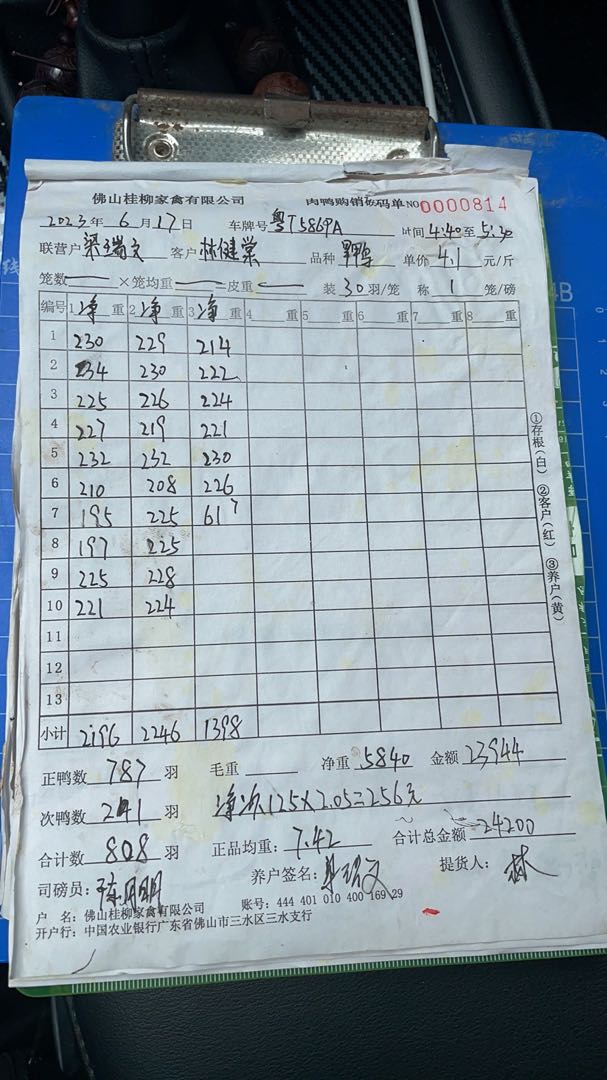 佛山桂柳家禽有限公司 肉鸭购销磅码单 NO 0000814
2023年 6月17日 车牌号 粤T5869A 时间 4:40至5:30
联营户 梁瑞文 客户 林健棠 品种 单价 4.1 元/斤
笼数 ×笼均重 皮重 装 30 羽/笼 称 1 笼/磅
编号 1 净 重 2 净 重 3 净 重 4 重 5 重 6 重 7 重 8 重
1 230 229 214
2 234 230 222
3 225 226 224
4 227 219 221
5 232 232 230
6 210 208 226
7 195 225 61 7
8 197 225
9 225 228
10 221 224
11
12
13
小计 2196 2246 1398
正鸭数 787 羽 毛重 净重 5840 金额 23944
次鸭数 21 羽 净次125×2.05=256元
合计数 808 羽 正品均重: 7.42 合计总金额 24200
司磅员: 养户签名: 提货人: 林
户 名: 佛山桂柳家禽有限公司 账号: 444 401 010 400 169 29
开户行: 中国农业银行广东省佛山市三水区三水支行
①存根(白) ②客户(红) ③养户(黄)